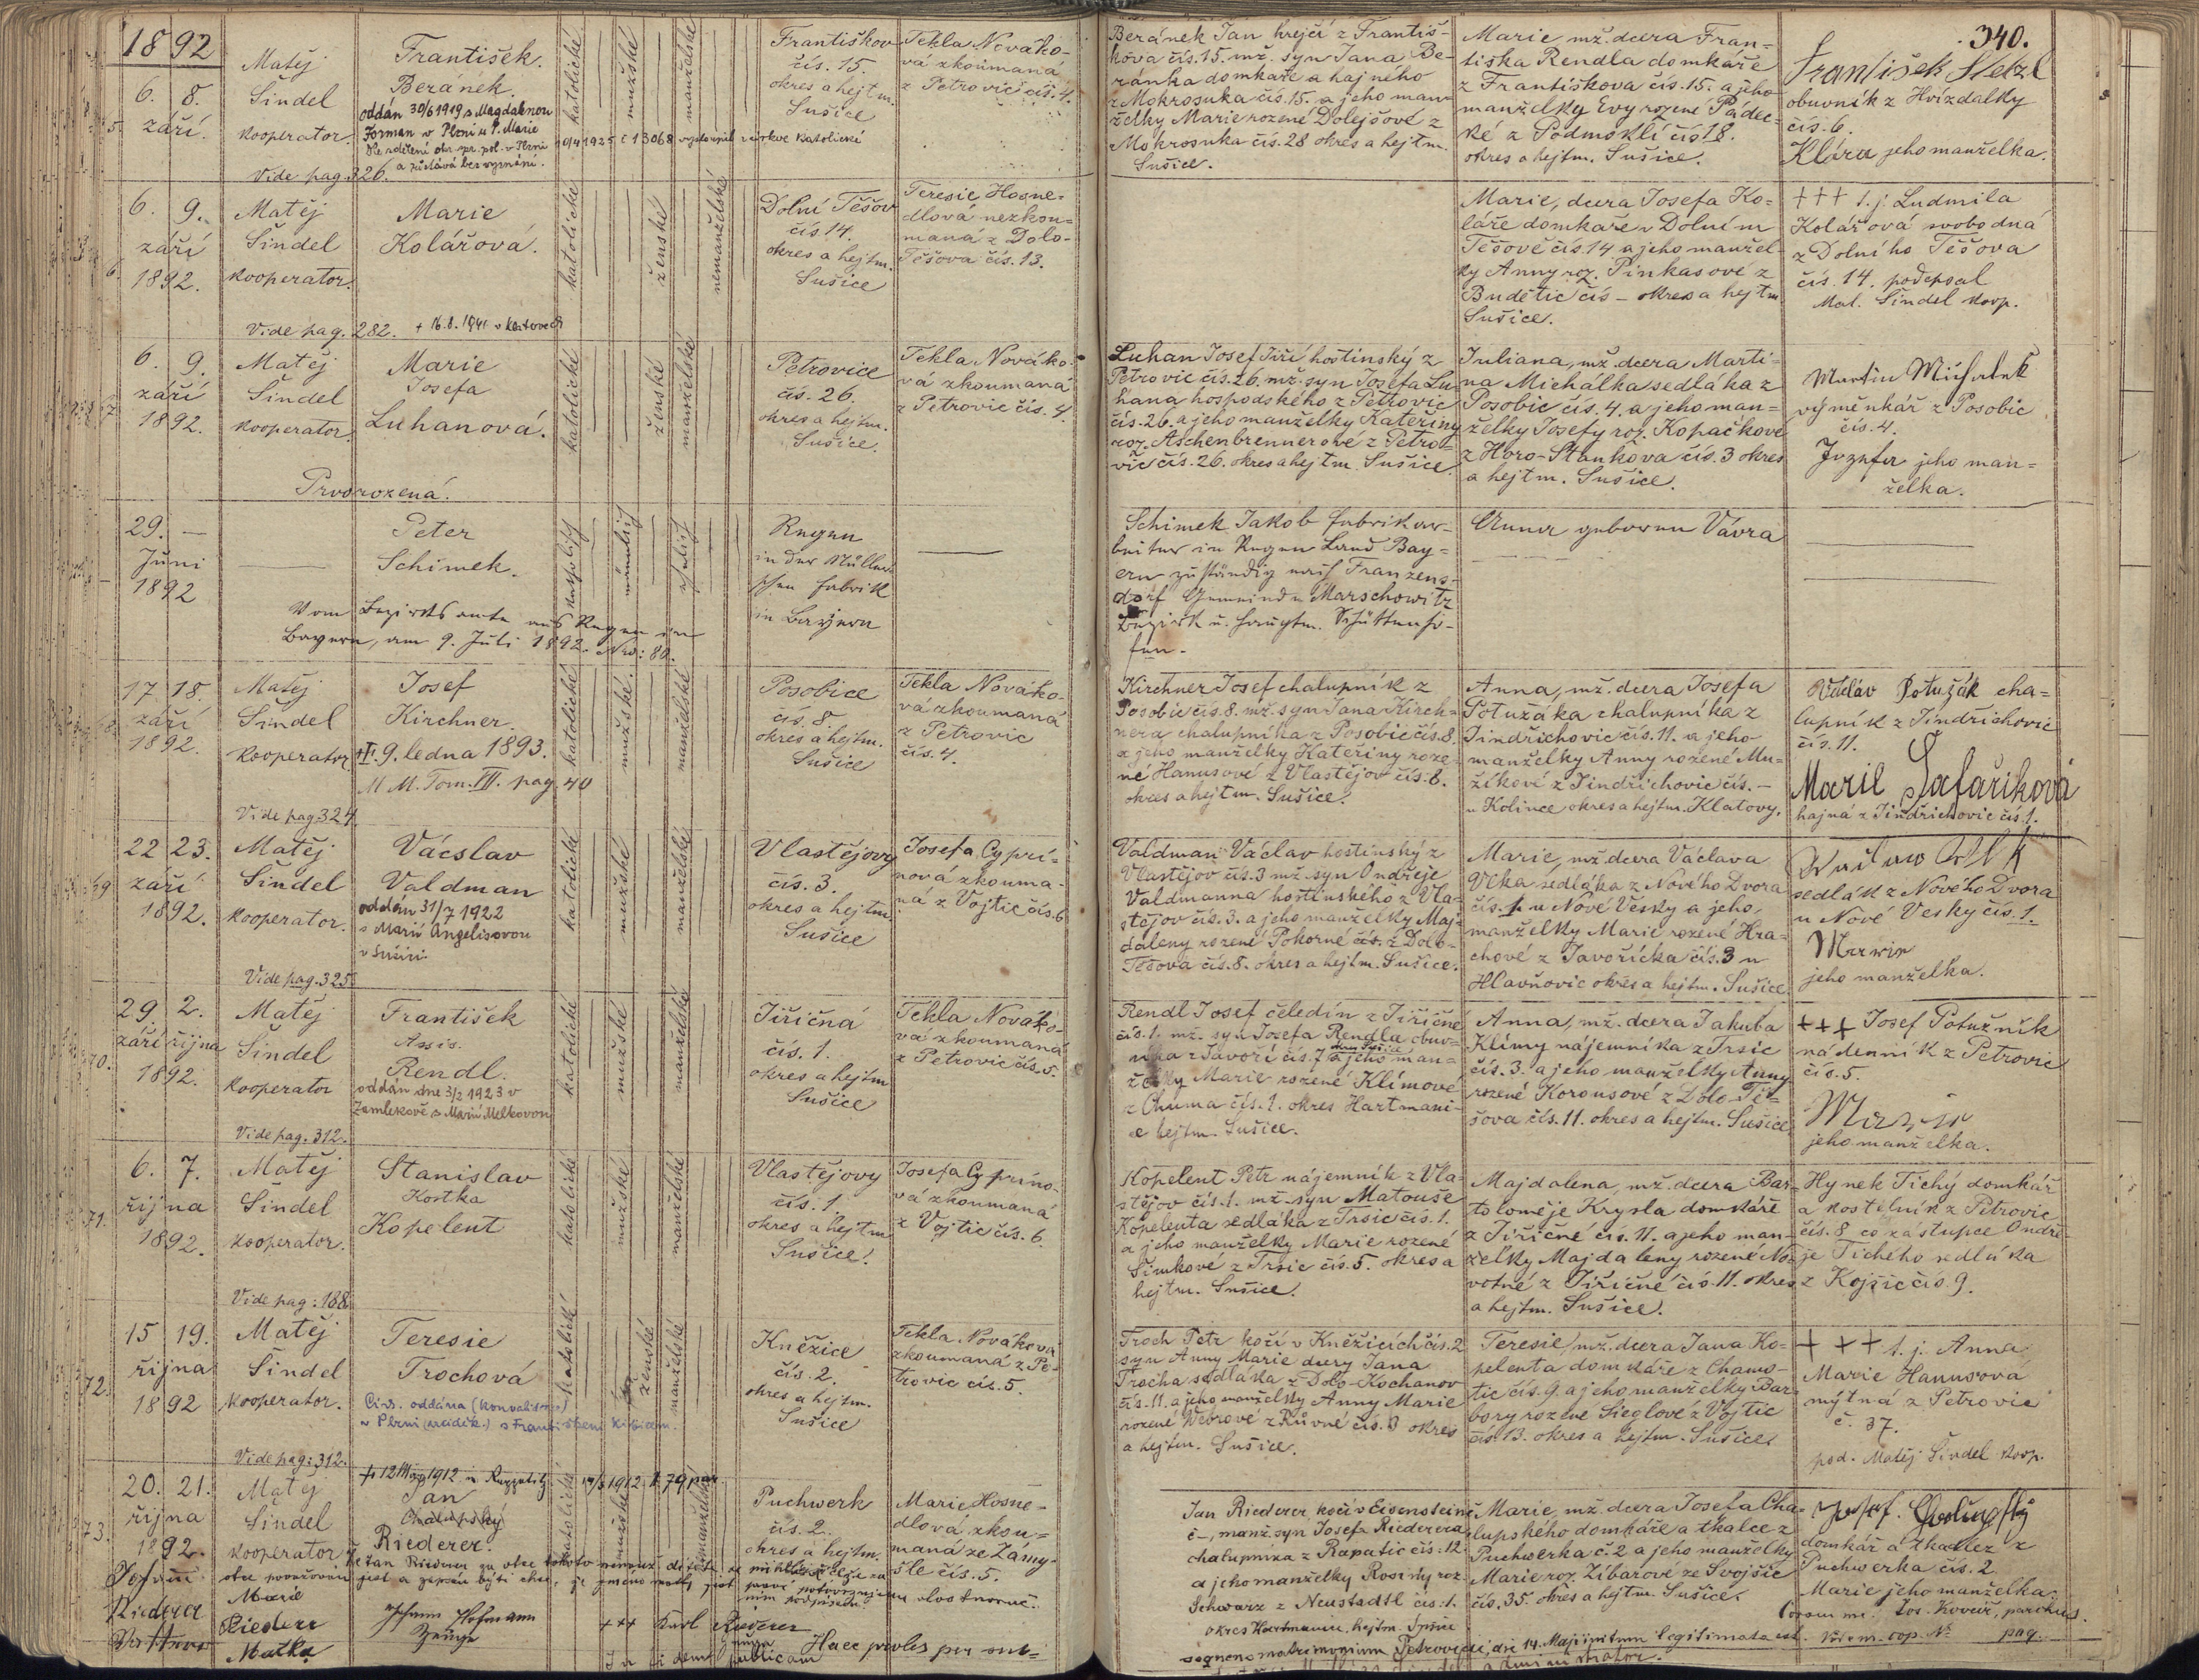 1892
340.
6. 8.
září
Matěj
Šindel
kooperator.
František
Beránek.
oddán 30/6 1919 s Magdalenou
Forman v Plzni u P. Marie
10/4 1925 č 13068 vystoupil z církve katolické
a zůstává bez vyznání.
Vide pag. 326.
katolické
mužské
manželské
Františkov
čís. 15.
okres a hejtm.
Sušice
Tekla Nováko-
vá zkoumaná
z Petrovic čís. 4.
Beránek Jan krejčí z Františ-
kova čís. 15. mž. syn Jana Be-
ránka domkáře a hajného
z Mokrosuka čís. 15. a jeho man-
želky Marie rozené Dolejšové z
Mokrosuka čís. 28 okres a hejtm.
Sušice.
Marie mž. dcera Fran-
tiška Rendla domkáře
z Františkova čís. 15. a jeho
manželky Evy rozené Pádec-
ké z Podmoklí čís 18.
okres a hejtm. Sušice.
František Stelzl
obuvník z Hvízdalky
čís. 6.
Klára jeho manželka.
6. 9.
září
1892.
Matěj
Šindel
kooperator.
Marie
Kolářová.
Vide pag. 282. + 16.8.1941 v Klatovech
katolické
ženské
nemanželské
Dolní Těšov
čís. 14.
okres a hejtm.
Sušice
Teresie Hosne-
dlová nezkou-
maná z Dolo-
Těšova čís. 13.
Marie, dcera Josefa Ko-
láře domkáře v Dolním
Těšově čís. 14 a jeho manžel-
ky Anny roz. Pinkasové z
Budětic čís – okres a hejtm.
Sušice.
+++ t. j. Ludmila
Kolářová svobodná
z Dolního Těšova
čís. 14. podepsal
Mat. Šindel koop.
6. 9.
září
1892.
Matěj
Šindel
kooperator.
Marie
Josefa
Luhanová.
Prvorozená.
katolické
ženské
manželské
Petrovice
čís. 26.
okres a hejtm.
Sušice.
Tekla Nováko-
vá zkoumaná
z Petrovic čís. 4.
Luhan Josef Jiří hostinský z
Petrovic čís. 26. mž. syn Josefa Lu-
hana hospodského z Petrovic
čís. 26. a jeho manželky Kateřiny
roz. Aschenbrennerové z Petro-
vic čís. 26. okres a hejtm. Sušice.
Juliana, mž. dcera Marti-
na Michálka sedláka z
Posobic čís. 4. a jeho man-
želky Josefy roz. Kopačkové
z Horo-Staňkova čís. 3 okres
a hejtm. Sušice.
Martin Michalek
výměnkář z Posobic
čís. 4.
Jozefa jeho man-
želka.
29. —
Juni
1892
Peter
Schimek.
Vom Bezirksamte aus Regen in
Bayern, am 9. Juli 1892. Nro: 80.
katholisch
männlich
ehelich
Regen
in der Müller-
schen Fabrik
in Bayern
Schimek Jakob Fabrikar-
beiter in Regen Land Bay-
ern zuständig nach Franzens-
dorf Gemeinde Marschowitz
Bezirk u. Hauptm. Schüttenho-
fen.
Anna geborene Vávra
17 18.
září
1892.
Matěj
Šindel
kooperator.
Josef
Kirchner.
9. ledna 1893.
M M. Tom. III. pag. 40
Vide pag 324.
katolické
mužské.
manželské
Posobice
čís. 8.
okres a hejtm.
Sušice
Tekla Nováko-
vá zkoumaná
z Petrovic
čís. 4.
Kirchner Josef chalupník z
Posobic čís. 8. mž. syn Jana Kirch-
nera chalupníka z Posobic čís. 8.
a jeho manželky Kateřiny roze-
né Hanusové z Vlastějov čís. 8.
okres a hejtm. Sušice.
Anna, mž. dcera Josefa
Potužáka chalupníka z
Jindřichovic čís. 11. a jeho
manželky Anny rozené Mu-
žíkové z Jindřichovic čís. –
u Kolince okres a hejtm. Klatovy.
Václav Potužák cha-
lupník z Jindřichovic
čís. 11.
Marie Šafaříková
hajná z Jindřichovic čís. 1.
22 23.
září
1892.
Matěj
Šindel
kooperator.
Vácslav
Valdman
oddán 31/7 1922
s Marií Angelisovou
v Sušici.
Vide pag. 325
katolické
mužské
manželské
Vlastějovy
čís. 3.
okres a hejtm
Sušice
Josefa Cypri-
nová zkouma-
ná z Vojtic čís. 6
Valdman Václav hostinský z
Vlastějov čís. 3 mž. syn Ondřeje
Valdmanna hostinského z Vla-
stějov čís. 3. a jeho manželky Maj-
daleny rozené Pokorné z Dolo-
Těšova čís. 8. okres a hejtm. Sušice.
Marie, mž. dcera Václava
Vlka sedláka z Nového Dvora
čís. 1 u Nové Vesky a jeho
manželky Marie rozené Hra-
chové z Javoříčka čís. 3 u
Hlavňovic okres a hejtm. Sušice.
sedlák z Nového Dvora
u Nové Vesky čís. 1.
Marie
jeho manželka.
29 2.
září října
1892.
70.
Matěj
Šindel
kooperator
František
Assis.
Rendl.
oddán dne 3/2 1923 v
Zamlekově s Marií Melkovou
Vide pag. 312.
katolické
mužské
manželské
Jiřičná
čís. 1.
okres a hejtm
Sušice
Tekla Nováko-
vá zkoumaná
z Petrovic čís. 5.
Rendl Josef čeledín z Jiřičné
čís. 1. mž. syn Josefa Rendla obuv-
níka z Javoří čís. 7 a jeho man-
želky Marie rozené Klímové
z Chuma čís. 1. okres Hartmani-
ce hejtm. Sušice.
Anna, mž. dcera Jakuba
Klímy nájemníka z Trsic
čís. 3. a jeho manželky Anny
rozené Korousové z Dolo-Tě-
šova čís. 11. okres a hejtm. Sušice
+++ Josef Potužník
nádenník z Petrovic
čís. 5.
Marie
jeho manželka.
6. 7.
října
1892.
71.
Matěj
Šindel
kooperator.
Stanislav
Kostka
Kopelent
Vide pag: 188
katolické
mužské
manželské
Vlastějovy
čís. 1.
okres a hejtm
Sušice.
Josefa Cyprino-
vá zkoumaná
z Vojtic čís. 6.
Kopelent Petr nájemník z Vla-
stějov čís. 1. mž. syn Matouše
Kopelenta sedláka z Trsic čís. 1.
a jeho manželky Marie rozené
Šimkové z Trsic čís. 5. okres a
hejtm. Sušice.
Majdalena, mž. dcera Bar-
toloměje Krysla domkáře
z Jiřičné čís. 11. a jeho man-
želky Majdaleny rozené No-
votné z Jiřičné čís. 11. okres
a hejtm. Sušice.
Hynek Tichý domkář
a kostelník z Petrovic
čís. 8 co zástupce Ondře-
je Tichého sedláka
z Kojšic čís. 9.
15 19.
října
1892
72.
Matěj
Šindel
kooperator.
Teresie
Trochová
Civ. oddána
v Plzni s Františkem
Vide pag: 312.
katolické
ženské
manželské
Kněžice
čís. 2.
okres a hejtm.
Sušice
Tekla Nováková
zkoumaná z Pe-
trovic čís. 5.
Troch Petr kočí v Kněžicích čís. 2
syn Anny Marie dcery Jana
Trocha sedláka z Dolo-Kochanov
čís. 11. a jeho manželky Anny Marie
rozené Webrové z Růvné čís. 3 okres
a hejtm. Sušice.
Teresie, mž. dcera Jana Ko-
pelenta domkáře z Chamo-
tic čís. 9. a jeho manželky Bar-
bory rozené Sieglové z Vojtic
čís. 13. okres a hejtm. Sušice.
+++ t. j. Anna
Marie Hanusová
mýtná z Petrovic
č. 37.
pod. Matěj Šindel koop.
20. 21.
října
1892.
73.
Matěj
Šindel
kooperator
Jan
Chalupský
Riederer.
katolické
mužské
Puchwerk
čís. 2.
okres a hejtm.
Marie Hosne-
dlová, zkou-
maná ze Zámy-
šle čís. 5.
Jan Riederer, kočí v Eisensteině
č –, manž. syn Josefa Riederera
chalupníka z Rapatic čís: 12.
a jeho manželky Rosiny roz.
Schwarz z Neustadtl čís: 1.
okres Hartmanice, hejtm. Sušice
Marie, mž. dcera Josefa Cha-
lupského domkáře a tkalce z
Puchwerka č. 2 a jeho manželky
Marie roz. Zíbarové ze Svojšic
čís. 35. okres a hejtm. Sušice.
Josef. Chalupský
domkář a tkadlec z
Puchwerka čís. 2.
Marie jeho manželka.
Coram me. Jos. Kovář, parochus.
Johann
Riederer
Marie
Riederer
Matka
Johann Hofmann
Zeuge
+++ Karl Riederer
Zeuge
Haec proles per sub-
sequens matrimonium Petrovicii, die 14. Maji initum legitimata est.
pag.